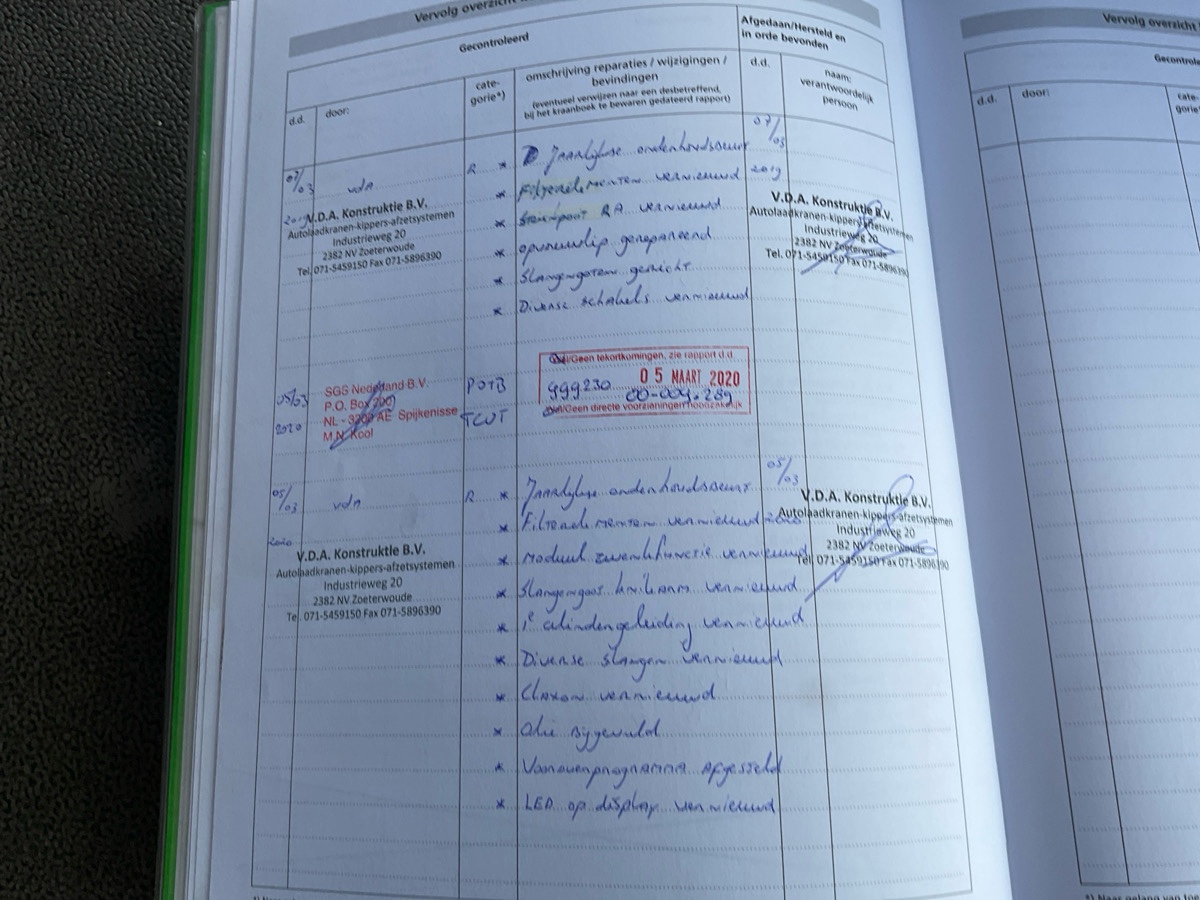 Vervolg overzicht
Gecontroleerd
Afgedaan/Hersteld en
in orde bevonden
d.d.
door:
cate-
gorie*)
omschrijving reparaties / wijzigingen /
bevindingen
(eventueel verwijzen naar een desbetreffend,
bij het kraanboek te bewaren gedateerd rapport)
d.d.
naam:
verantwoordelijk
persoon
07/03 2019
vdA
R
* Jaarlijkse onderhoudsbeurt
* Filterelementen vernieuwd
* RA vernieuwd
* gerepareerd
* Slangengoten gericht
* Diverse schakels vernieuwd
07/03
2019
V.D.A. Konstruktie B.V.
Autolaadkranen-kippers-afzetsystemen
Industrieweg 20
2382 NV Zoeterwoude
Tel. 071-5459150 Fax 071-5896390
V.D.A. Konstruktie B.V.
Autolaadkranen-kippers-afzetsystemen
Industrieweg 20
2382 NV Zoeterwoude
Tel. 071-5459150 Fax 071-5896390
05/03
2020
SGS Nederland B.V.
P.O. Box 200
NL - 3200 AE Spijkenisse
M.N. Kool
TCVT
/Geen tekortkomingen, zie rapport d.d.
05 MAART 2020
999230 00-009.289
/Geen directe voorzieningen noodzakelijk
05/03
2020
vdA
R
* Jaarlijkse onderhoudsbeurt
* Filterelementen vernieuwd
* Moduul zwenkfunctie vernieuwd
* vernieuwd
* 1e cilindergeleiding vernieuwd
* Diverse slangen vernieuwd
* Claxon vernieuwd
* Olie bijgevuld
* afgesteld
* LED op display vernieuwd
05/03
2020
V.D.A. Konstruktie B.V.
Autolaadkranen-kippers-afzetsystemen
Industrieweg 20
2382 NV Zoeterwoude
Tel. 071-5459150 Fax 071-5896390
V.D.A. Konstruktie B.V.
Autolaadkranen-kippers-afzetsystemen
Industrieweg 20
2382 NV Zoeterwoude
Tel. 071-5459150 Fax 071-5896390
Vervolg overzicht
d.d.
door:
cate-
gorie*